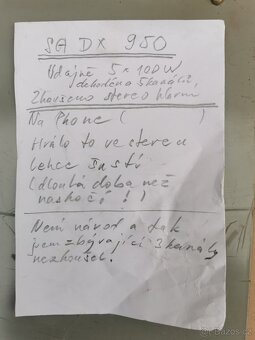 SA DX 950
Údajně 5 x 100W
dekodéru 5 kanálů,
Zkoušeno stereo
Na Phone ( )
Hrálo to ve stereu
lehce šustí
(dlouhá doba než
naskočí!)
Není návod a tak
jsem zbývající 3 kanály
nezkoušel.